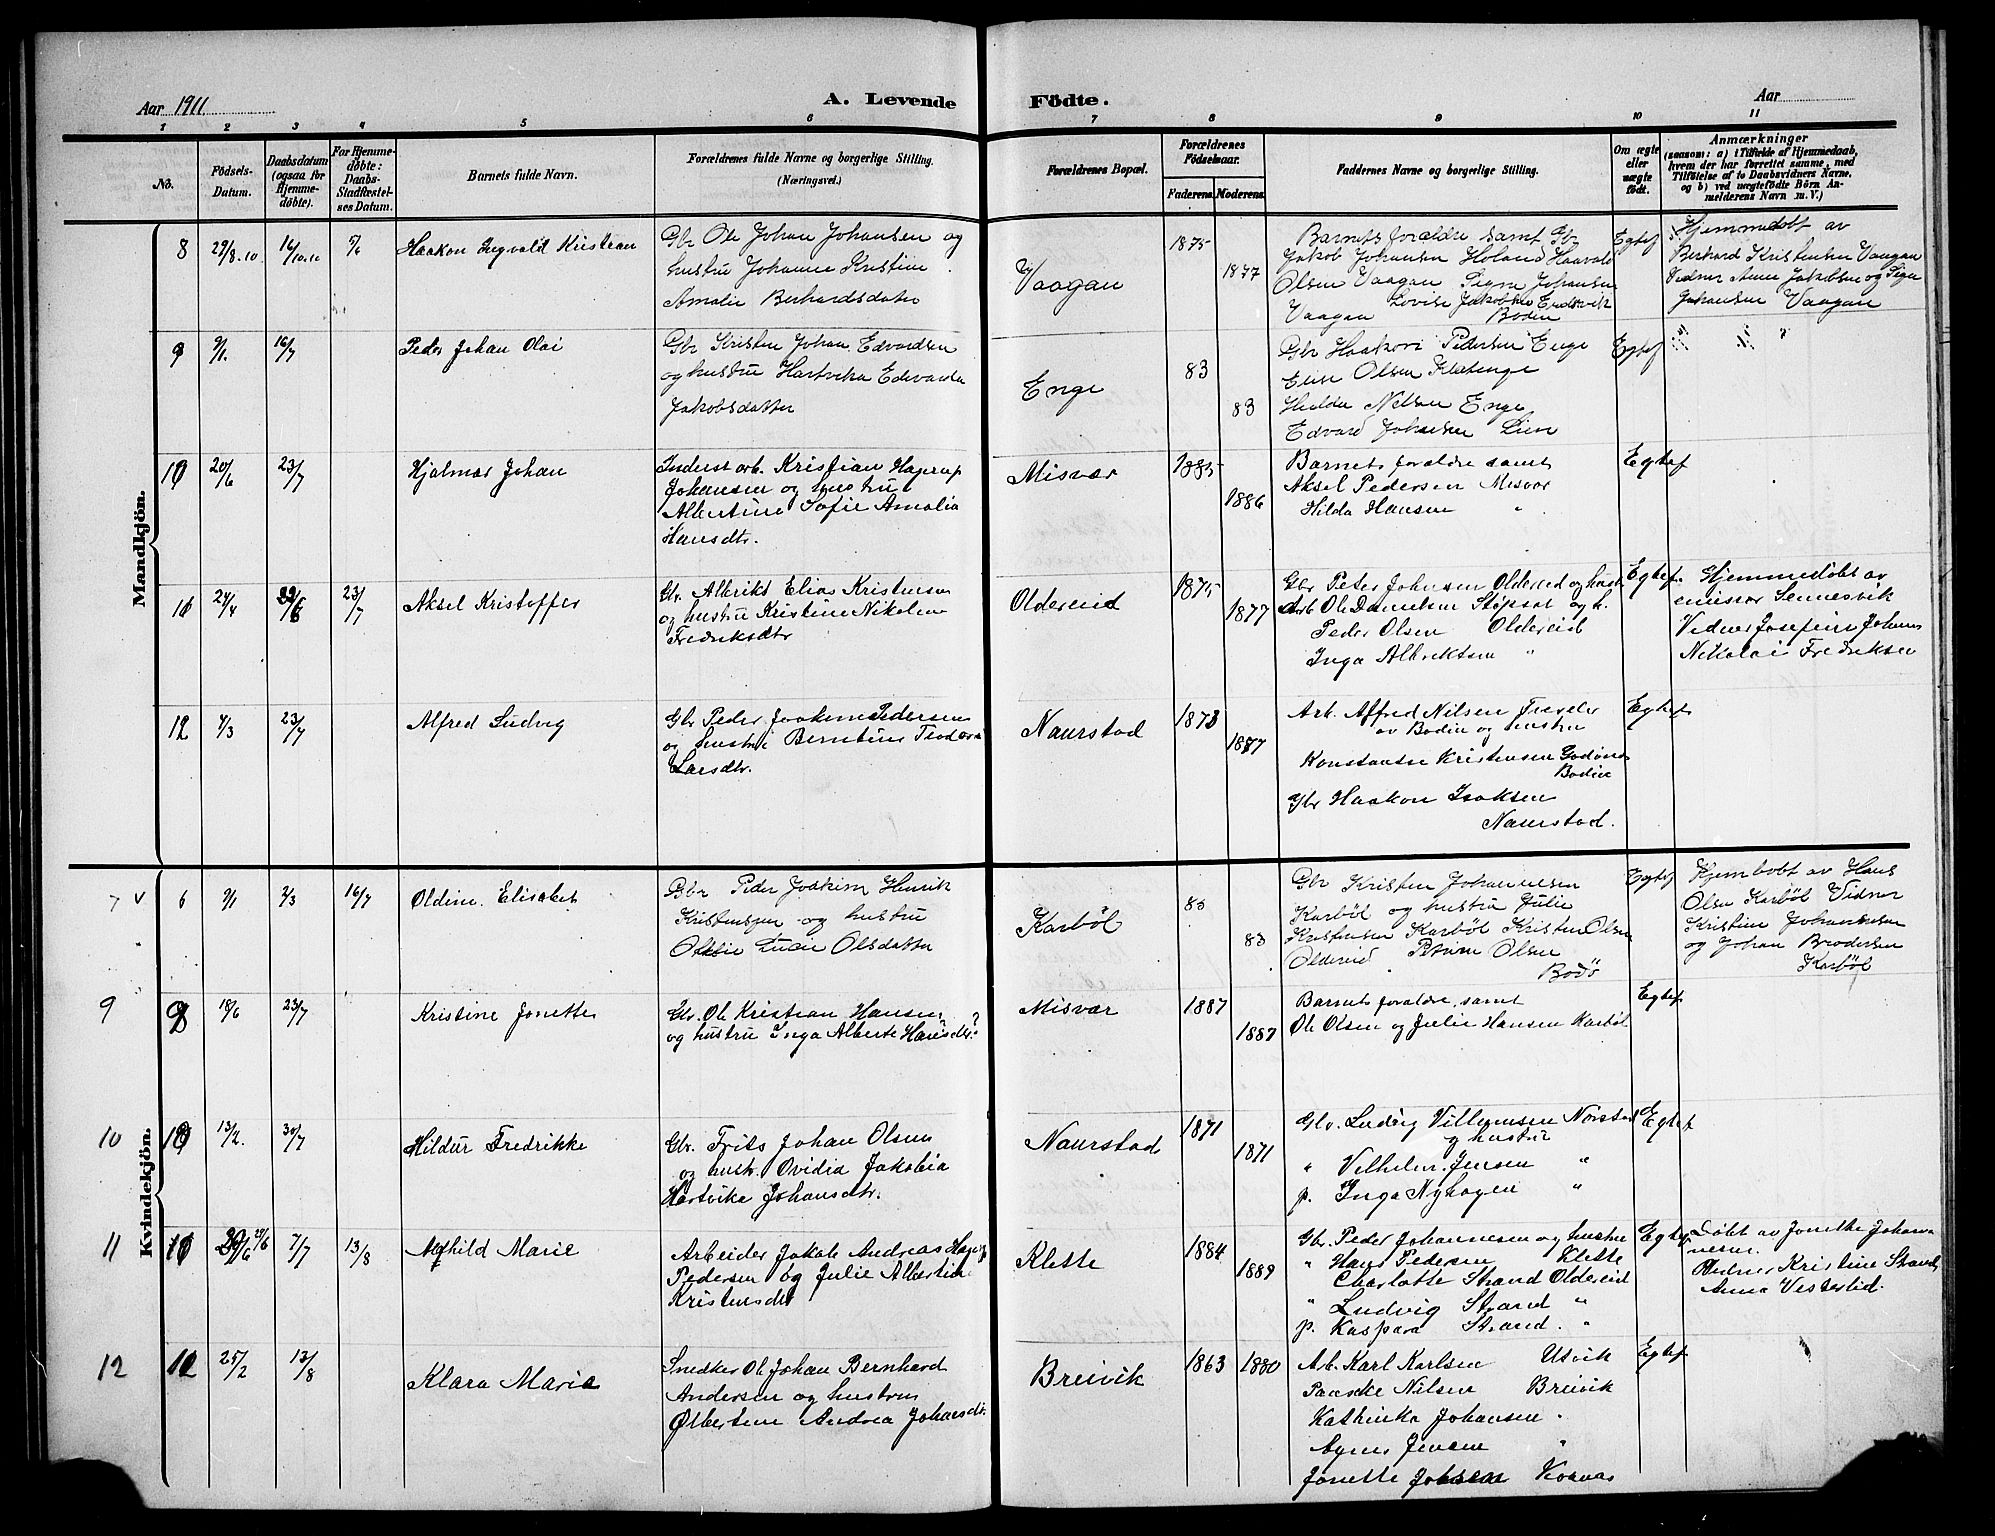 Aar 1911.
A. Levende Födte.
Aar
1 2 3 4 5 6 7 8 9 10 11
No.
Födsels-Datum.
Daabsdatum (ogsaa for Hjemme-döbte).
For Hjemme-döbte: Daabs-Stadfæstel-ses Datum.
Barnets fulde Navn.
Forældrenes fulde Navne og borgerlige Stilling. (Næringsvei.)
Forældrenes Bopæl.
Forældrenes Födselsaar.
Faderens. Moderens.
Faddernes Navne og borgerlige Stilling.
Om ægte eller uægte födt.
Anmærkninger
(saasom: a) i Tilfælde af Hjemmedaab, hvem der har forrettet samme, med Tilföielse af to Daabsvidners Navne, og b) ved uægtefödte Börn Anmelderens Navn m. V.)
Mandkjön.
8 29/8.10 16/10.10 5/6 Haakon Ingvald Kristian
Gbr Ole Johan Johansen og
hustru Johanne Kristine
Amalie Berhardsdatter
Vaagan
1875 1877
Barnets foraldre samt Gbr
Jakob Johansen Holand Haavald
Olsen Vaagan Signe Johansen
Vaagan Lovise Jakobsen
Bodin
Egtef
Hjemmedobt av
Berhard Kristensen Vaagan
Vidner Anne Jakobsen og Signe
Johansen Vaagan
9 9/1 16/7 Peder Johan Olai
Gbr Kristen Johan Edvardsen
og hustru Hartvika Edvarda
Jakobsdatter
Enge
83 83
Gbr Haakon Pedersen Enge
Elise Olsen Kletenge
Hulda Nelsen Enge
Edvard Johansen Lien
Egtef
10 20/6 23/7 Hjalmar Johan
Inderst arb. Kristian Hagerup
Johansen og hustru
Albertine Sofie Amalia
Hansdtr.
Misvær
1885 1886
Barnets foraldre samt
Aksel Pedersen Misvær
Hilda Hansen "
Egtef
11 24/4 29/6 23/7 Aksel Kristoffer
Gbr. Albrikt Elias Kristensen
og hustru Kristine Nikoline
Fredriksdtr
Oldereid
1875 1877
Gbr Peder Johnsen Oldereid og hust
Arb Ole Danielsen Støpset og h.
Peder Olsen Oldereid
Inga Albriktsen "
Egtef.
Hjemmedøbt av
emissær Sennesvik
Vidner Josefine Johans
Nikolai Fredriksen
12 4/3 23/7 Alfred Ludvig
Gbr Peder Joakim Pedersen
og hustru Berntine Teodora
Larsdtr.
Naurstad
1873 1877
Arb. Alfred Nilsen
av Bodin og hustru
Konstanse Kristensen Godønes
Bodin
Gbr Haakon Isaksen
Naurstad.
Egtef
Kvindekjön.
7 v 6 9/1 2/3 16/7 Oldine Elisabet
Gbr Peder Joakim Henrik
Kristensen og hustru
Lucie Olsdatter
Karbøl
83 83
Gbr Kristen Johannesen
Karbøl og hustru Julie
Kristensen Karbøl Kristen Olsen
Oldereid Petrine Olsen
Bodø
Egtef
Hjembobt av Hans
Olsen Karbøl Vidner
Kristine Johannesen
og Johan Brodersen
Karbøl
9 9 18/6 23/7 Kristine Jonette
Gbr. Ole Kristian Hansen
og hustru Inga Alberte Hansdtr.?
Misvær
1887 1887
Barnets foraldre, samt
Ole Olsen og Julie Hansen Karbøl
Egtef
10 10 13/2. 30/7 Hildur Fredrikke
Gbr. Frits Johan Olsen
og hustr. Ovidia Jakobia
Hartvike Johansdtr.
Naurstad
1871 1871
Gbr. Ludvig Villumsen Nørstad
og hustru
" Vilhelm Jensen "
p. Inga Nyhagen "
Egtef
11 11 29/6 7/7 13/8 Alfhild Marie
Arbeider Jakob Andreas Hagerup
Pedersen og Julie Albertine
Kristensdtr
Klette
1884 1889
Gbr. Peder Johannesen og hustru
" Hans Pedersen Klette
Charlotte Strand Oldereid
" Ludvig Strand "
p. Kaspara Strand. "
Egtef
Døbt av Jonette Johan-
nesen.
Vidner Kristine Strand,
Anna Vesterlid.
12 12 25/2 13/8 Klara Marie
Snedker Ole Johan Bernhard
Andersen og hustru
Olbertine Andrea Johansdtr.
Breivik
1863 1880
Arb. Karl Karlsen Utvik
Nilsen Breivik
Kathinka Johansen "
Agnes Jensen "
Jonette Johnsen
Egtef